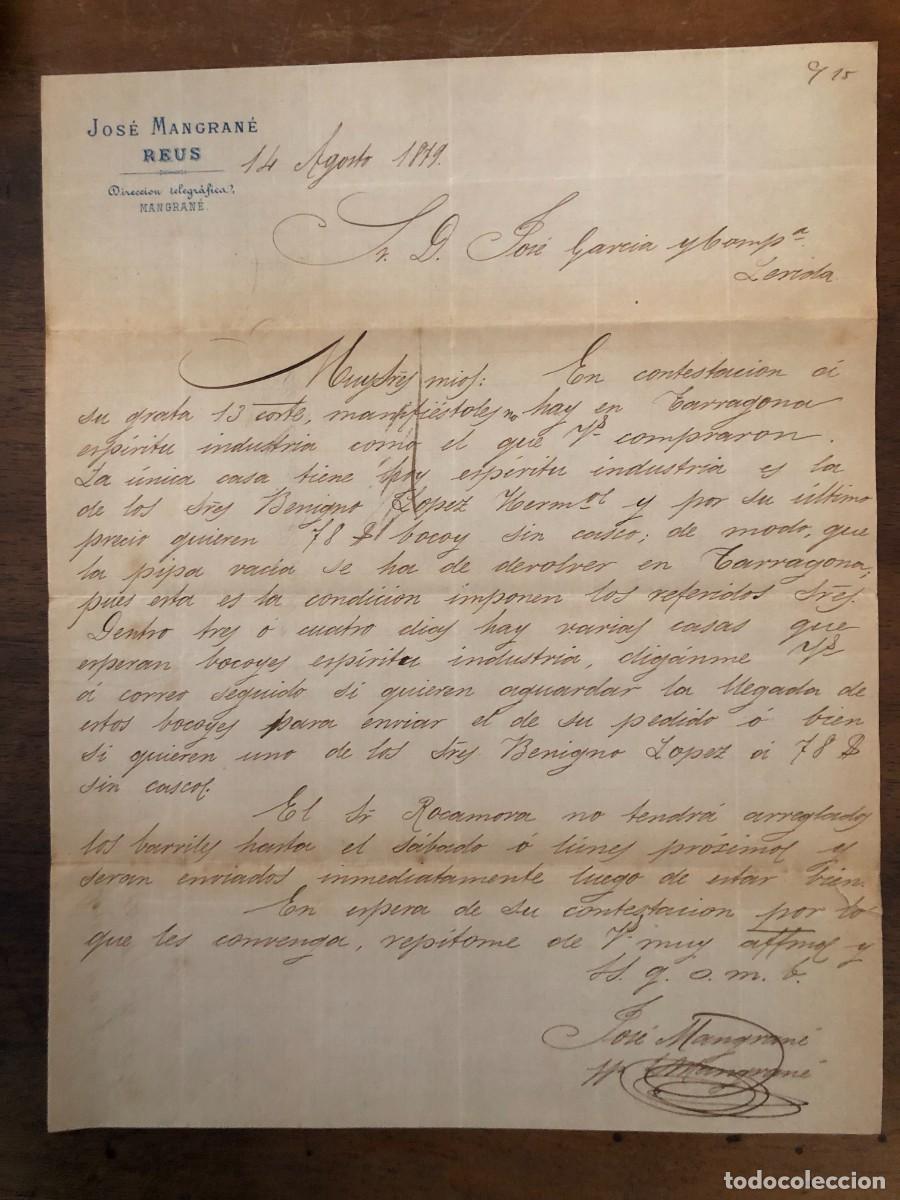 C/ 15
JOSÉ MANGRANÉ
REUS
Direccion telegráfica,
MANGRANÉ.
14 Agosto 1879.
Sr. D. José Garcia y Compª
Lerida
Muy Sres mios: En contestacion á
su grata 13 corte, manifiéstoles no hay en Tarragona
espíritu industria como el que Vs compraron.
La única casa tiene hoy espíritu industria es la
de los Sres Benigno Lopez Hermos y por su último
precio quieren 78 $ bocoy sin casco; de modo, que
la pipa vacia se ha de devolver en Tarragona;
pues esta es la condicion imponen los referidos Sres.
Dentro tres ó cuatro dias hay varias casas que
esperan bocoyes espíritu industria, digánme Vs
á correo seguido si quieren aguardar la llegada de
estos bocoyes para enviar el de su pedido ó bien
si quieren uno de los Sres Benigno Lopez á 78 $
sin casco.
El Sr Rocamora no tendrá arreglados
los barriles hasta el sábado ó lúnes próximos y
seran enviados inmediatamente luego de estar bien.
En espera de su contestacion por lo
que les convenga, repítome de Vs muy affmo y
SS. q. s. m. b.
José Mangrané
Mangrané
todocoleccion